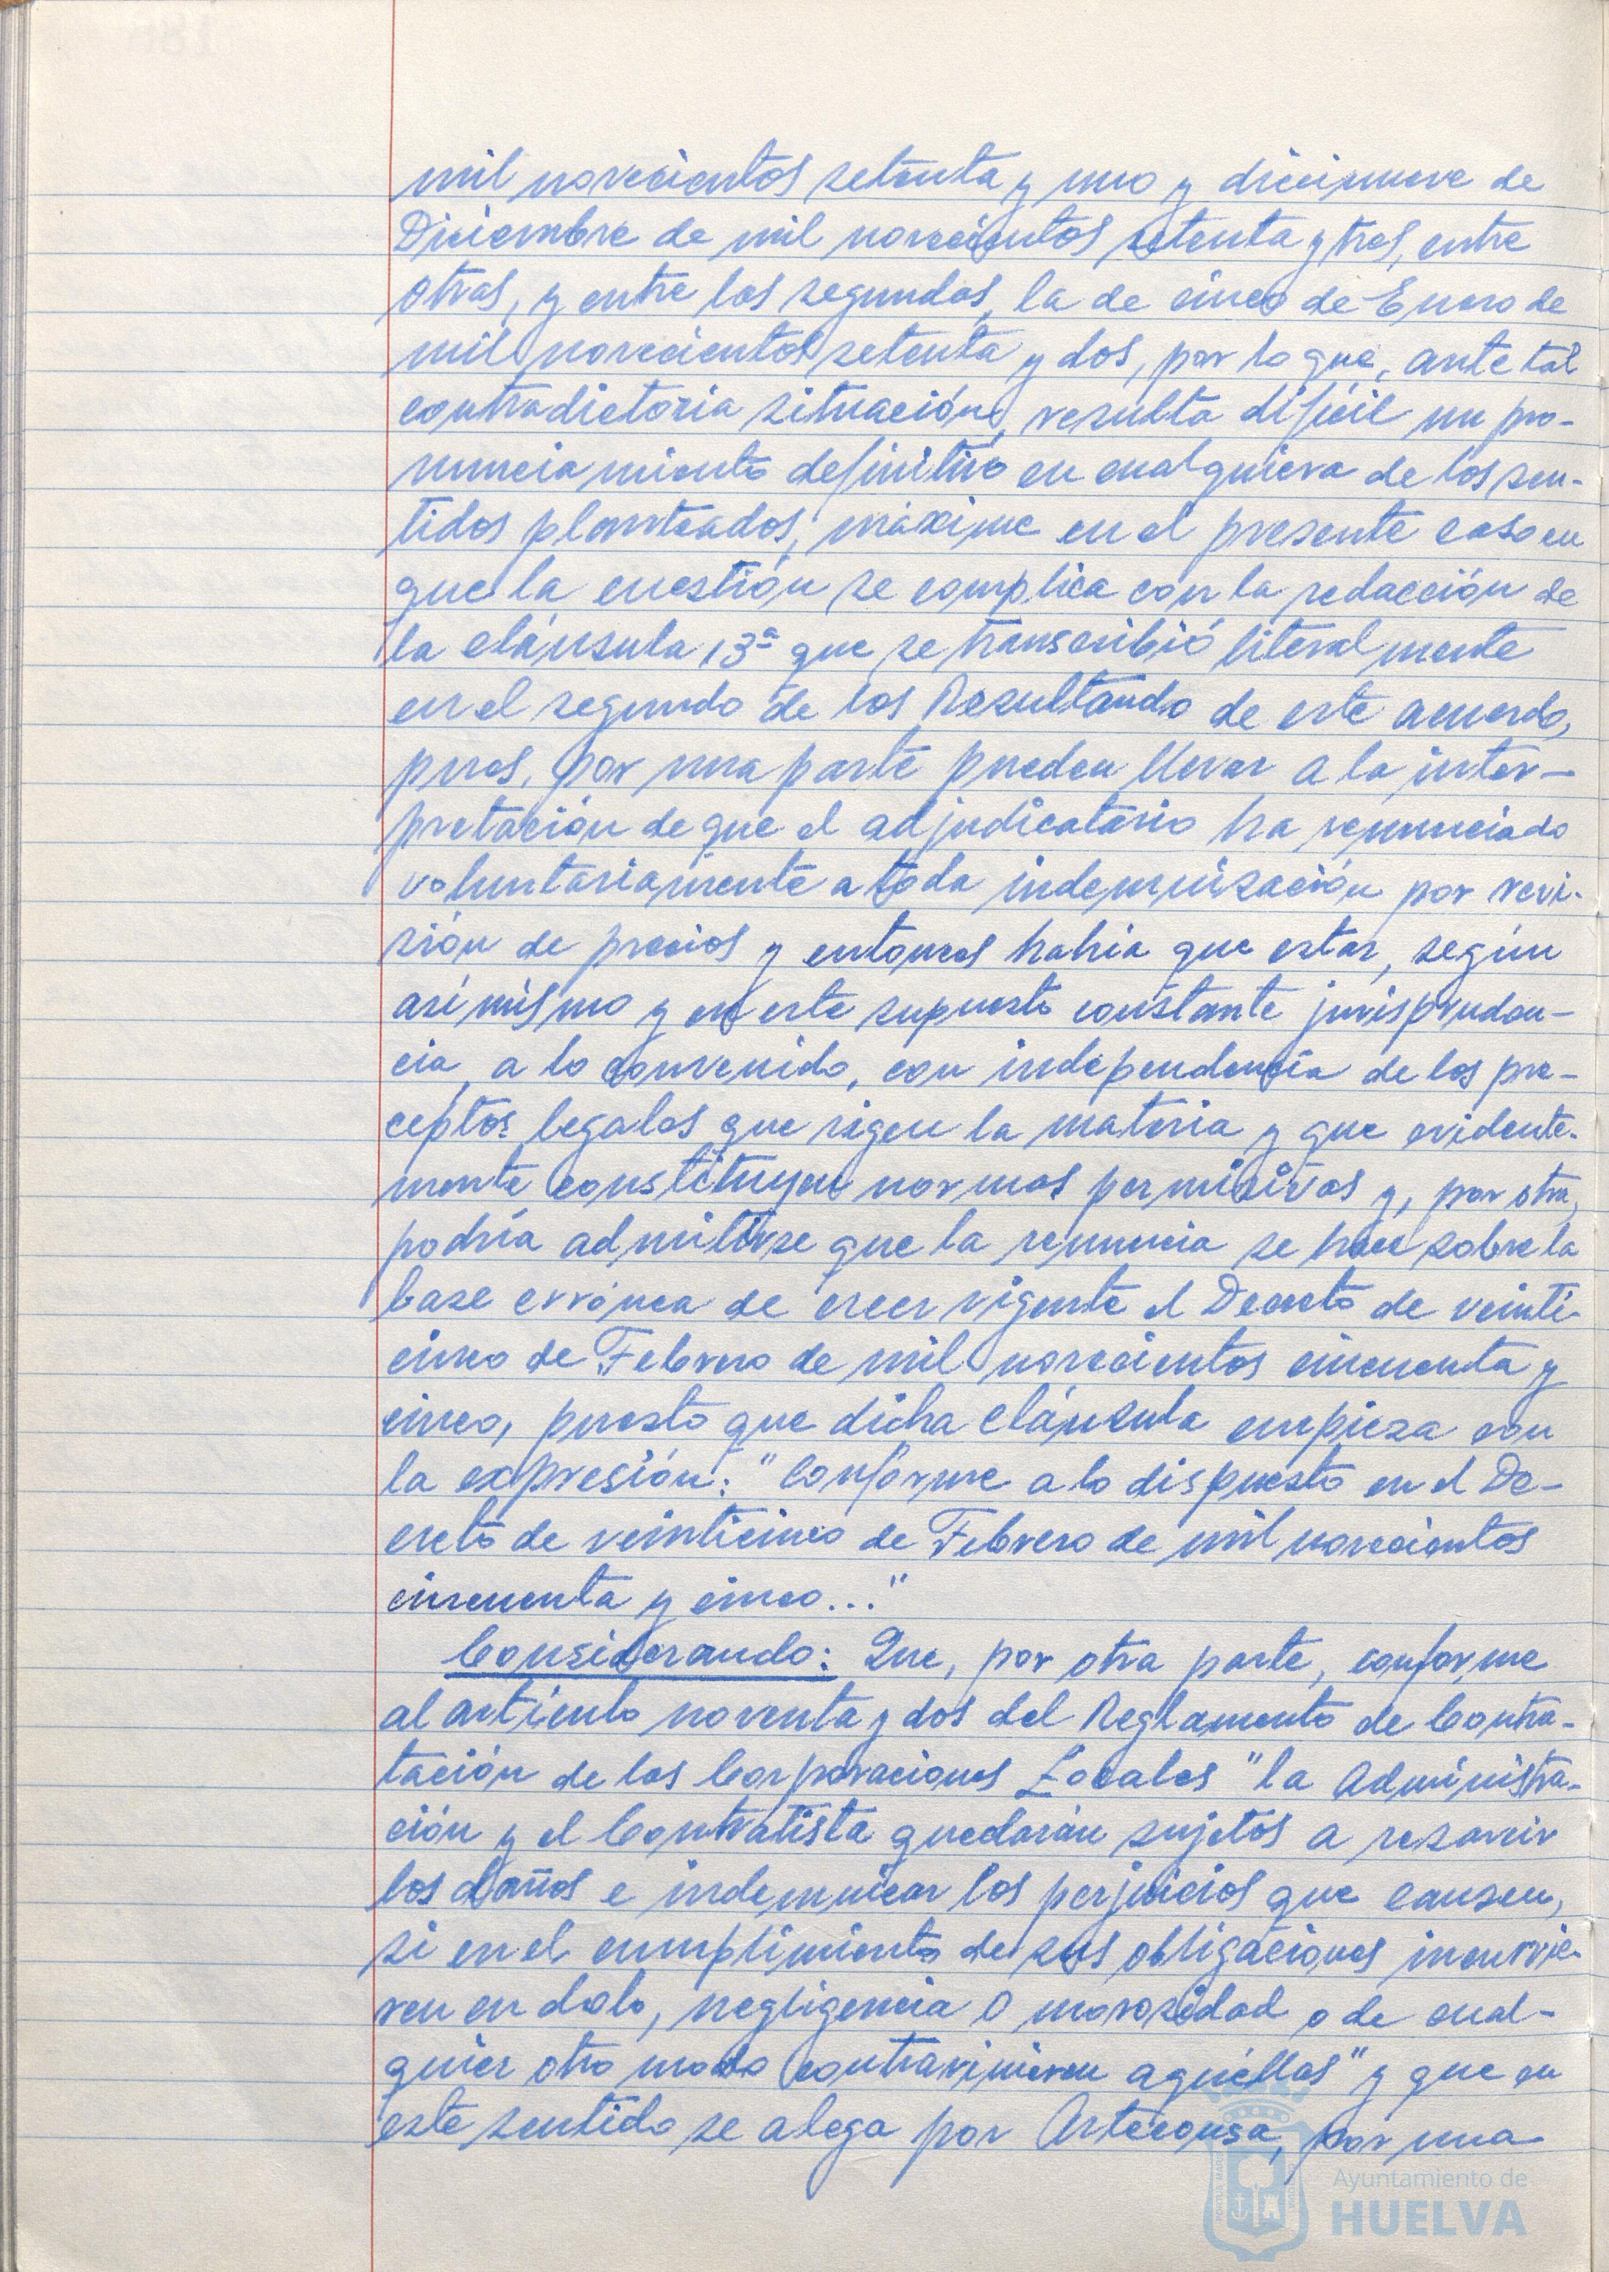 mil novecientos setenta y uno y diecinueve de
Diciembre de mil novecientos setenta y tres, entre
otras, y entre las segundas, la de cinco de Enero de
mil novecientos setenta y dos, por lo que, ante tal
contradictoria situación, resulta difícil un pro-
nunciamiento definitivo en cualquiera de los sen-
tidos planteados; máxime en el presente caso en
que la cuestión se complica con la redacción de
la cláusula 13ª que se transcribió literalmente
en el segundo de los Resultando de este acuerdo,
pues, por una parte pueden llevar a la inter-
pretación de que el adjudicatario ha renunciado
voluntariamente a toda indemnización por revi-
sión de precios y entonces habría que estar, según
asimismo y en este supuesto constante jurispruden-
cia, a lo convenido, con independencia de los pre-
ceptos legales que rigen la materia y que evidente-
mente constituyen normas permisivas y, por otra,
podría admitirse que la renuncia se hace sobre la
base errónea de creer vigente el Decreto de veinti-
cinco de Febrero de mil novecientos cincuenta y
cinco, puesto que dicha cláusula empieza con
la expresión: "Conforme a lo dispuesto en el De-
creto de veinticinco de Febrero de mil novecientos
cincuenta y cinco..."
Considerando: Que, por otra parte, conforme
al artículo noventa y dos del Reglamento de Contra-
tación de las Corporaciones Locales "la Administra-
ción y el Contratista quedarán sujetos a resarcir
los daños e indemnizar los perjuicios que causen,
si en el cumplimiento de sus obligaciones incurrie-
ren en dolo, negligencia o morosidad o de cual-
quier otro modo contravinieren aquéllas" y que en
este sentido se alega por Arteconsa, por una
Ayuntamiento de
HUELVA